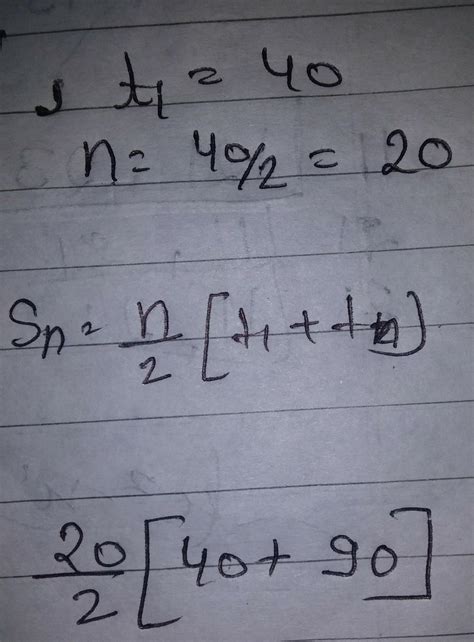 , t₁ = 40
n = 40/2 = 20
Sn = n/2 [t₁ + tn]
20/2 [40 + 90]